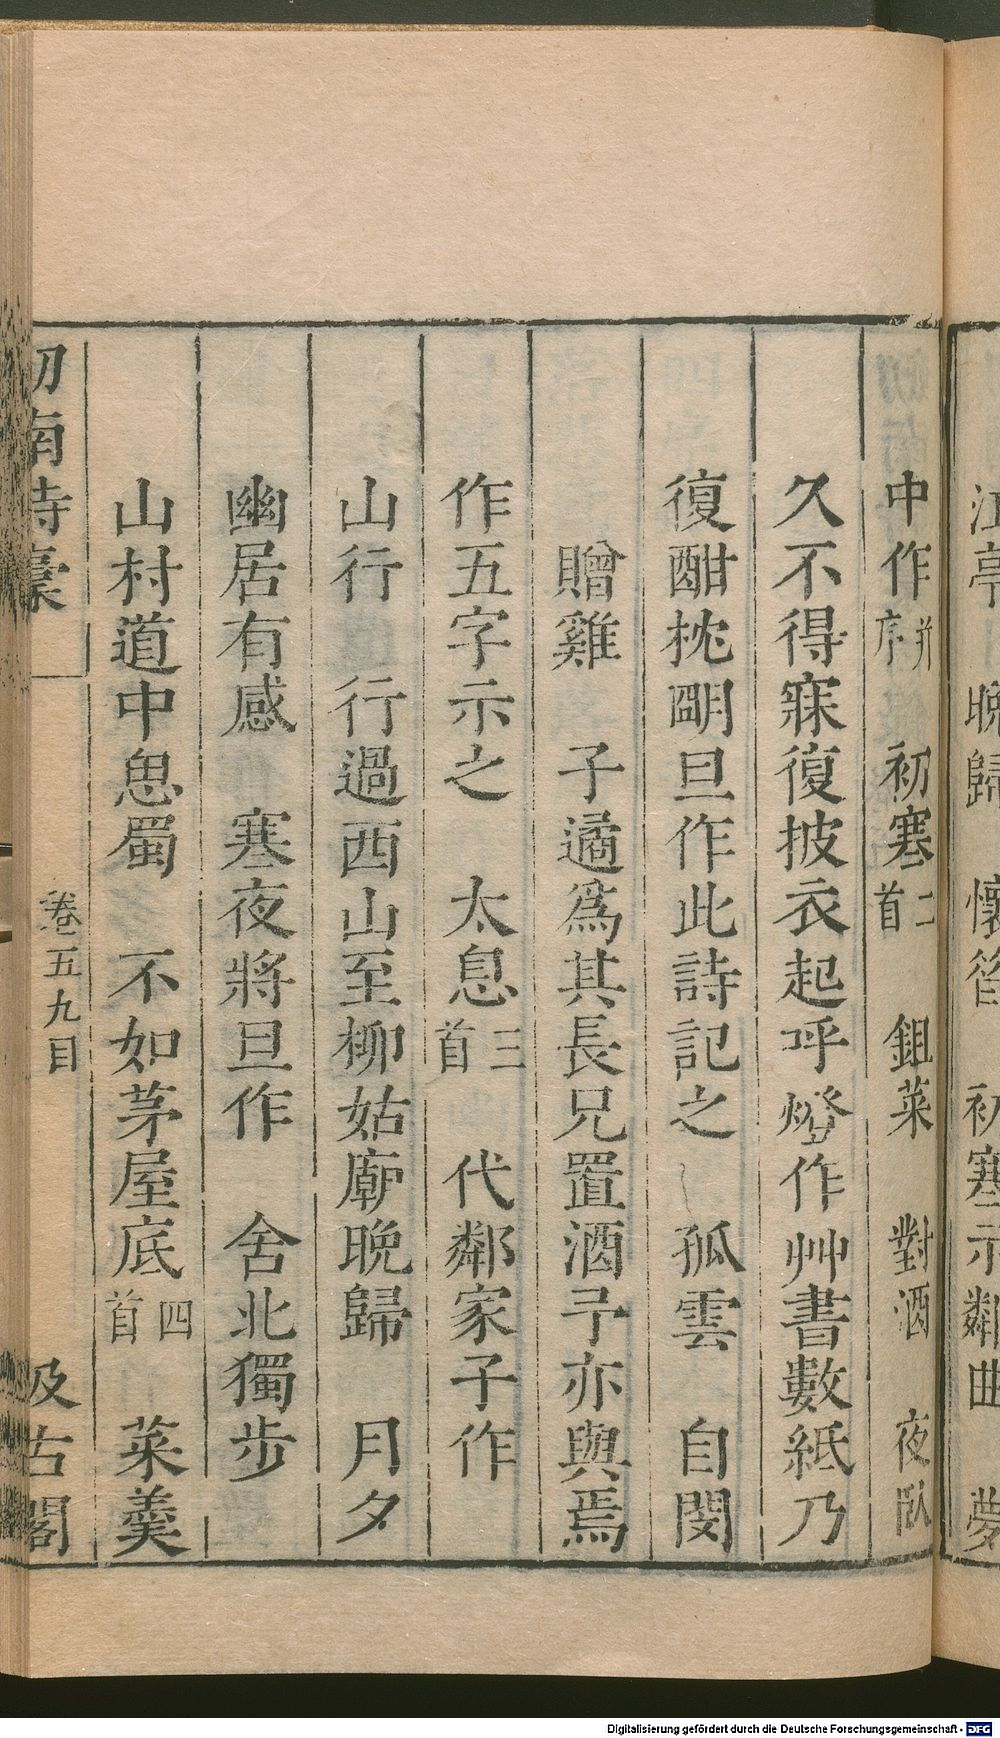 江亭 晚歸 懷 初寒示鄰曲 夢
中作并序 初寒二首 鉏菜 對酒 夜臥
久不得寐復披衣起呼燈作艸書數紙乃
復酣枕明旦作此詩記之 孤雲 自閔
贈雞 子遹爲其長兄置酒予亦與焉
作五字示之 太息三首 代鄰家子作
山行 行過西山至柳姑廟晚歸 月夕
幽居有感 寒夜將旦作 舍北獨步
山村道中思蜀 不如茅屋底四首 菜羹
劒南詩稾 卷五九目 汲古閣
Digitalisierung gefördert durch die Deutsche Forschungsgemeinschaft - DFG